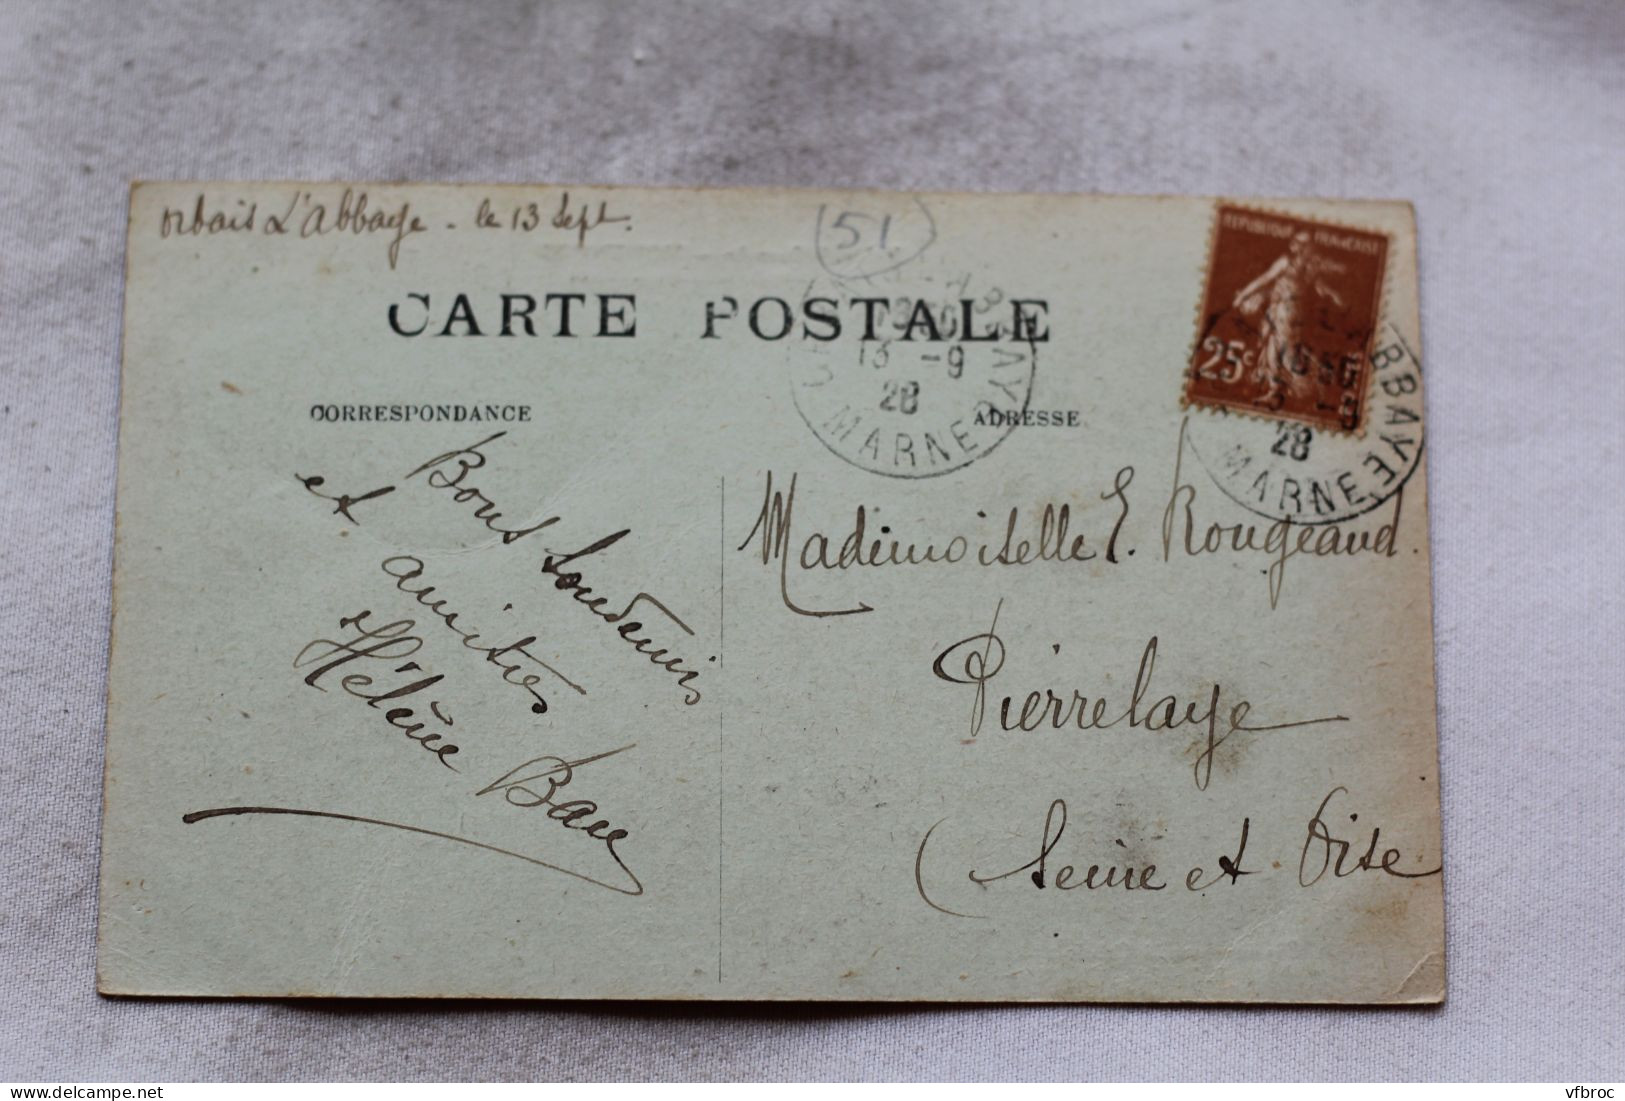 orbais L'abbaye - le 13 Sept.
(51)
CARTE POSTALE
CORRESPONDANCE
ADRESSE
13 -9
28
MARNE
REPUBLIQUE FRANÇAISE
25c
28
MARNE
Bons Souvenirs
et amitiés
Hélène
Mademoiselle E. Rougeaud.
Pierrelaye
(Seine et Oise
www.delcampe.net
vfbroc